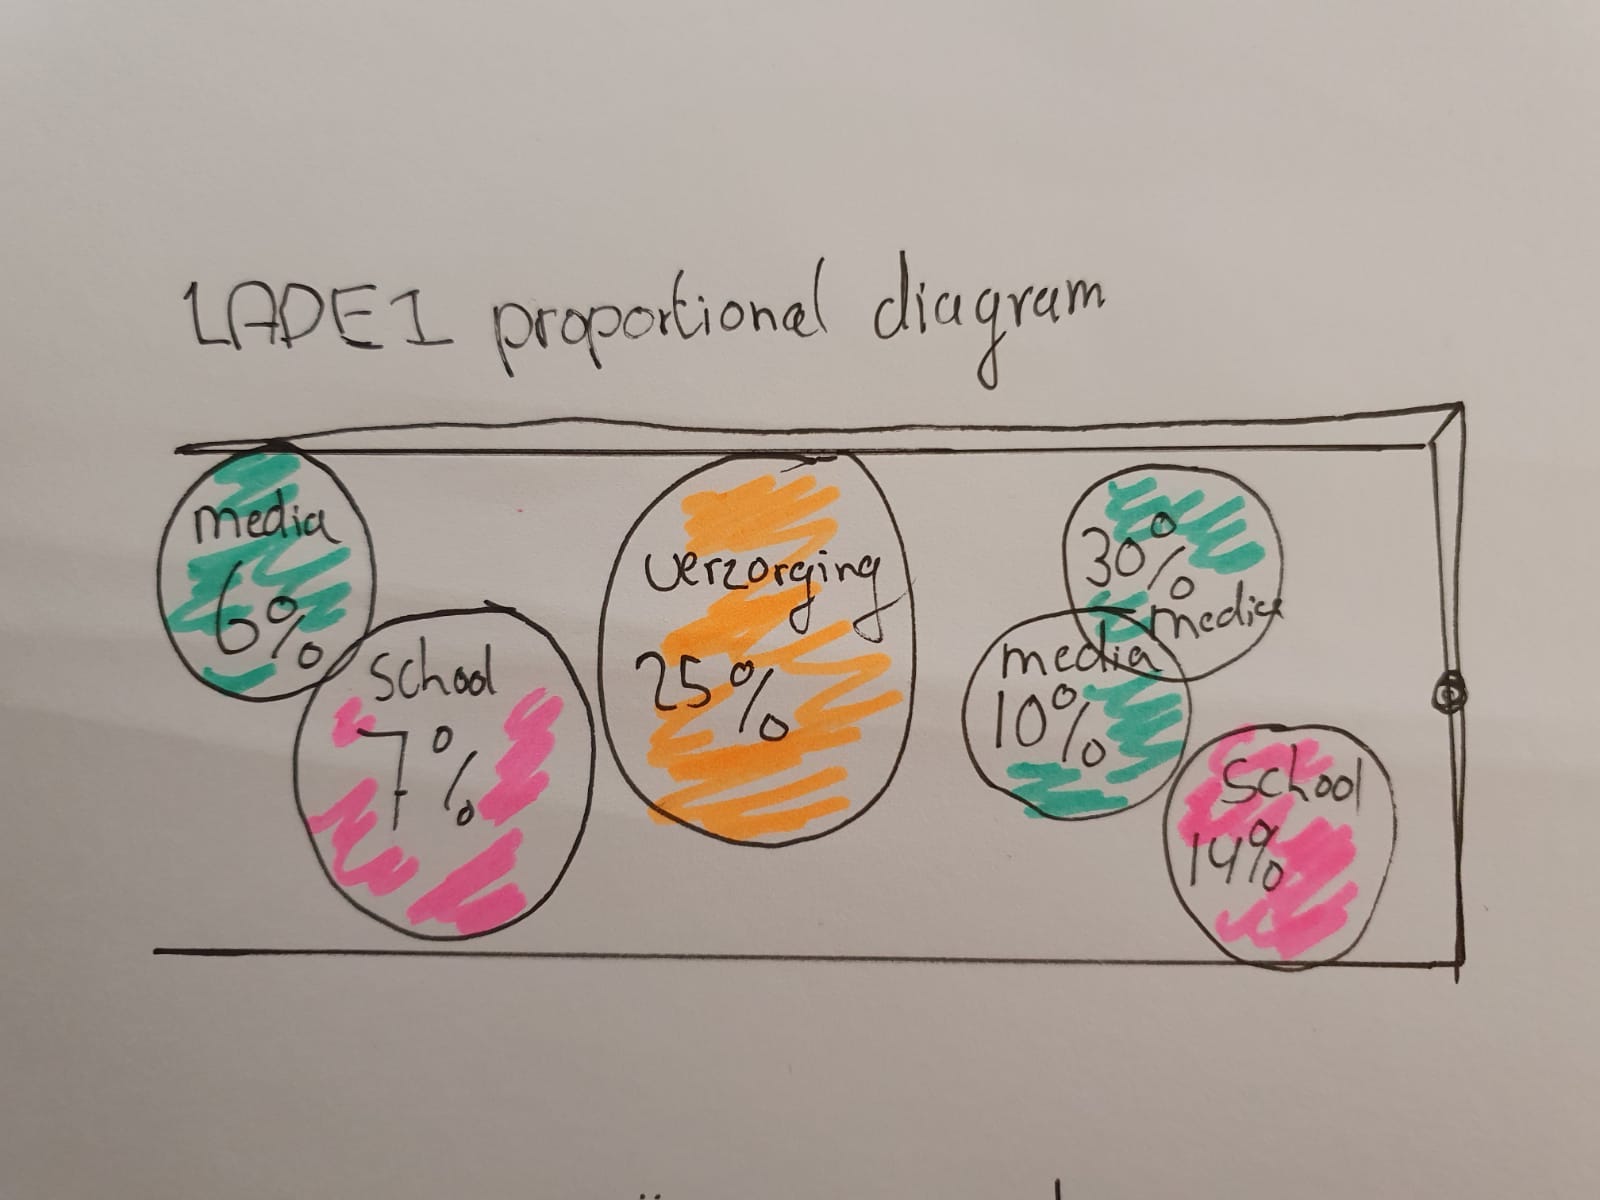 LADE1 proportional diagram
media
6%
school
7%
verzorging
25%
30%
media
media
10%
school
14%